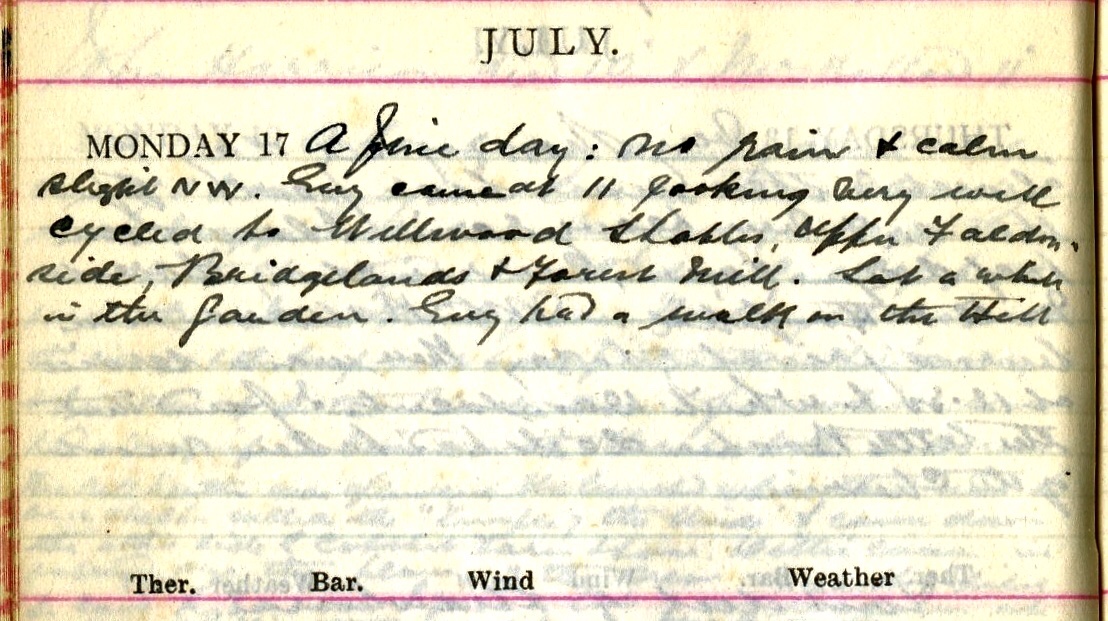 JULY.
MONDAY 17 A fine day: no rain & calm
slight NW. Guy came at 11 looking very well
cycled to Wellwood Stables, Upper Faldon-
side, Bridgelands & Forest Mill. Sat a while
in the garden. Guy had a walk on the Hill
Ther. Bar. Wind Weather